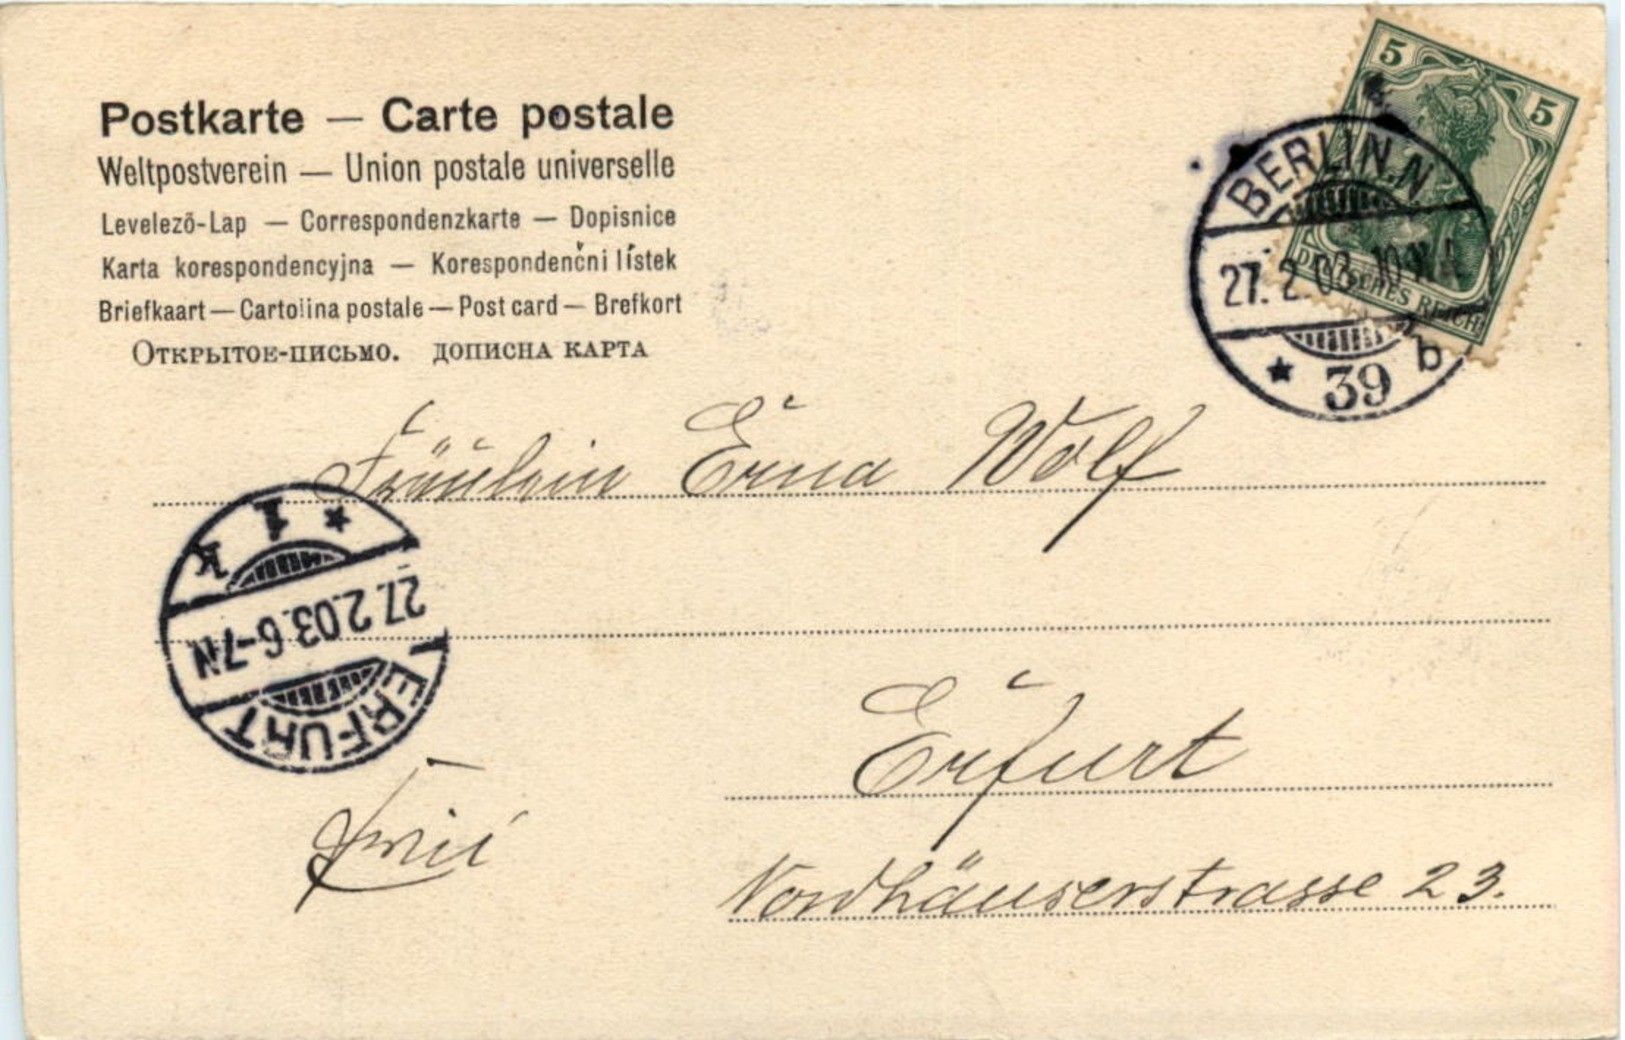 Postkarte — Carte postale
Weltpostverein — Union postale universelle
Levelező-Lap — Correspondenzkarte — Dopisnice
Karta korespondencyjna — Korespondenčni lístek
Briefkaart — Cartolina postale — Post card — Brefkort
Открытое-письмо. дописна карта
5 5
DEUTSCHES REICH
BERLIN.N
27. 2. 03. 10-11V.
* 39 b
Fräulein Erna Wolf
* 1 k
27.2.03.6-7N
ERFURT
Erfurt
Nordhäuserstrasse 23.